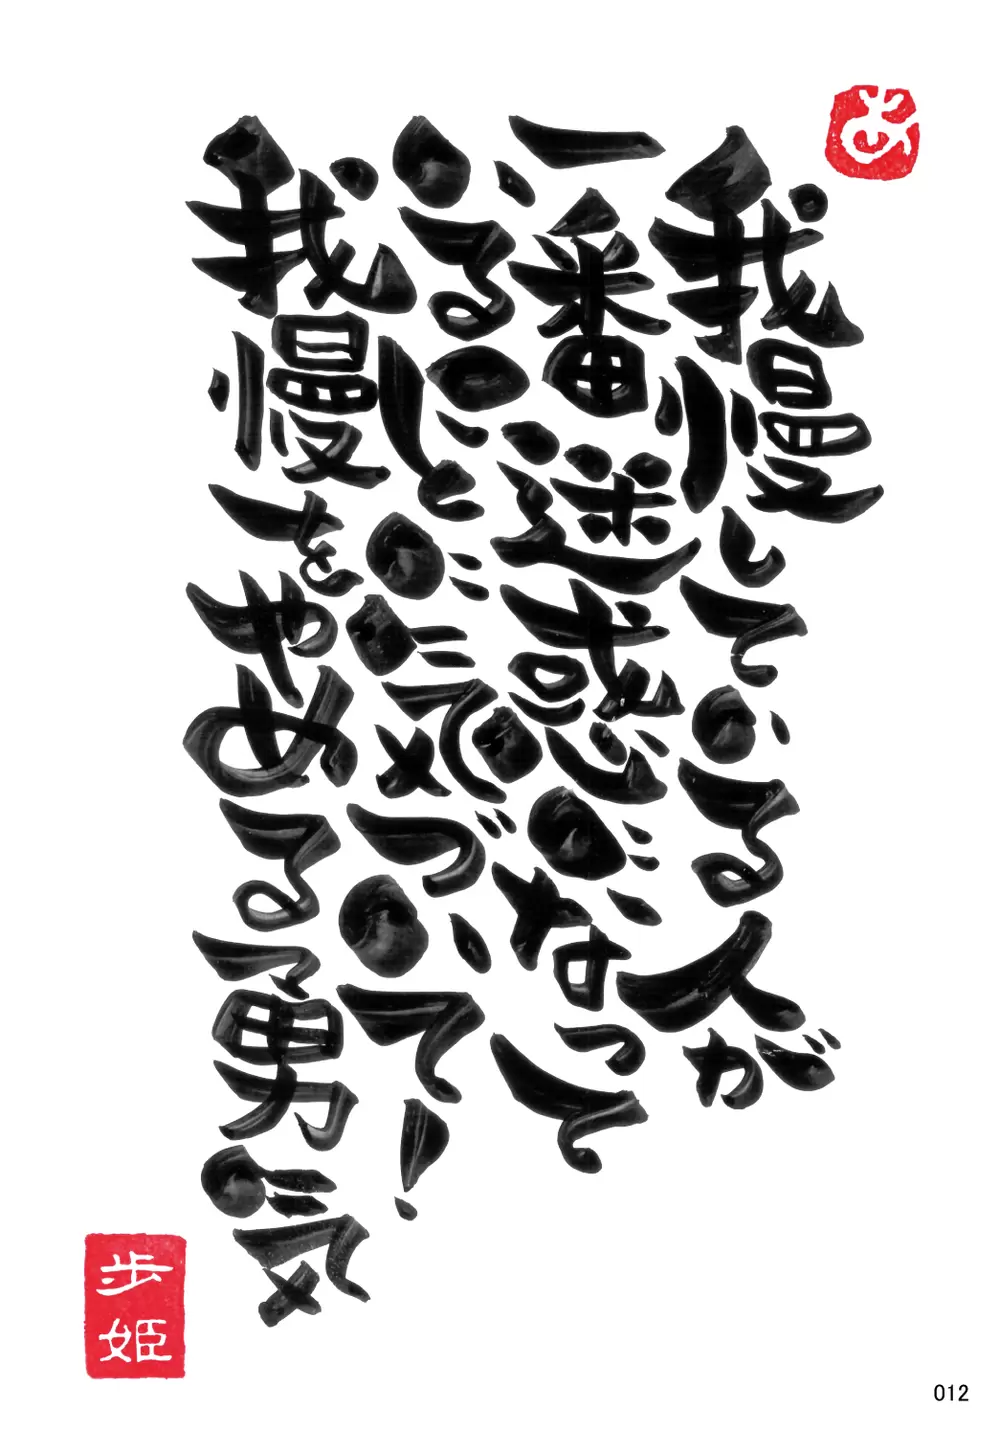 あ
我慢している人が
一番迷惑がなって
いることにが気づいて!
我慢をやめる勇気
歩姫
012